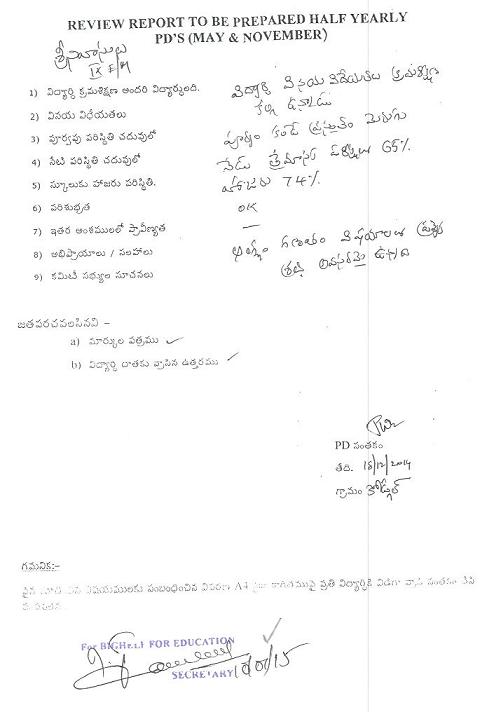 REVIEW REPORT TO BE PREPARED HALF YEARLY
PD'S (MAY & NOVEMBER)
IX E/M
1) విద్యార్థి క్రమశిక్షణ అందరి విద్యార్థులది. విద్యార్థి వినయ విధేయతలు క్రమశిక్షణ
2) వినయ విధేయతలు కల్గి ఉన్నాడు
3) పూర్వపు పరిస్థితి చదువులో పూర్వం కంటే ప్రస్తుతం మెరుగు
4) నేటి పరిస్థితి చదువులో నేడు త్రైమాస 65%
5) స్కూలుకు హాజరు పరిస్థితి. హాజరు 74%
6) పరిశుభ్రత OK
7) ఇతర అంశములలో ప్రావీణ్యత —
8) అభిప్రాయాలు / సలహాలు గణితం విషయాలలో
9) కమిటీ సభ్యుల సూచనలు శ్రద్ధ అవసరమై ఉన్నది
జతపరచవలసినవి –
a) మార్కుల పత్రము ✓
b) విద్యార్థి దాతకు వ్రాసిన ఉత్తరము ✓
PD సంతకం
తేది. 18/12/2014
గ్రామం
గమనిక:-
విషయములకు సంబంధించిన వివరణ A4 కాగితముపై ప్రతి విద్యార్థికి విడిగా వ్రాసి సంతకం చేసి
For BIGHELP FOR EDUCATION
SECRETARY 10/01/15